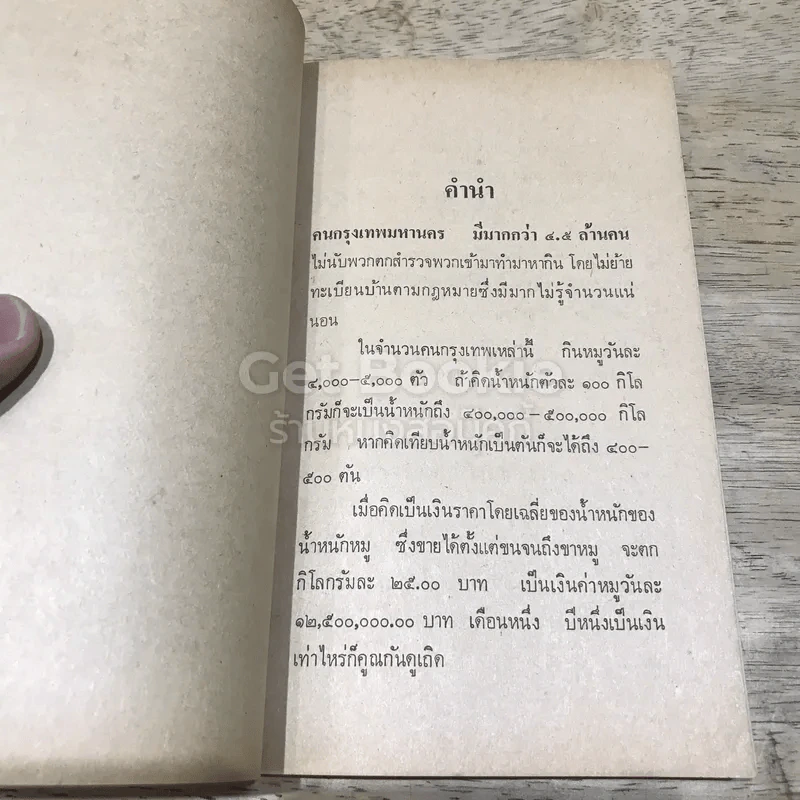 คำนำ
คนกรุงเทพมหานคร มีมากกว่า ๔.๕ ล้านคน
ไม่นับพวกตกสำรวจพวกเข้ามาทำมาหากิน โดยไม่ย้าย
ทะเบียนบ้านตามกฎหมายซึ่งมีมากไม่รู้จำนวนแน่
นอน
ในจำนวนคนกรุงเทพเหล่านี้ กินหมูวันละ
๔,๐๐๐-๕,๐๐๐ ตัว ถ้าคิดน้ำหนักตัวละ ๑๐๐ กิโล
กรัมก็จะเป็นน้ำหนักถึง ๔๐๐,๐๐๐-๕๐๐,๐๐๐ กิโล
กรัม หากคิดเทียบน้ำหนักเป็นตันก็จะได้ถึง ๔๐๐-
๕๐๐ ตัน
เมื่อคิดเป็นเงินราคาโดยเฉลี่ยของน้ำหนักของ
น้ำหนักหมู ซึ่งขายได้ตั้งแต่ขนจนถึงขาหมู จะตก
กิโลกรัมละ ๒๕.๐๐ บาท เป็นเงินค่าหมูวันละ
๑๒,๕๐๐,๐๐๐.๐๐ บาท เดือนหนึ่ง ปีหนึ่งเป็นเงิน
เท่าไหร่ก็คูณกันดูเถิด
Get Bookie